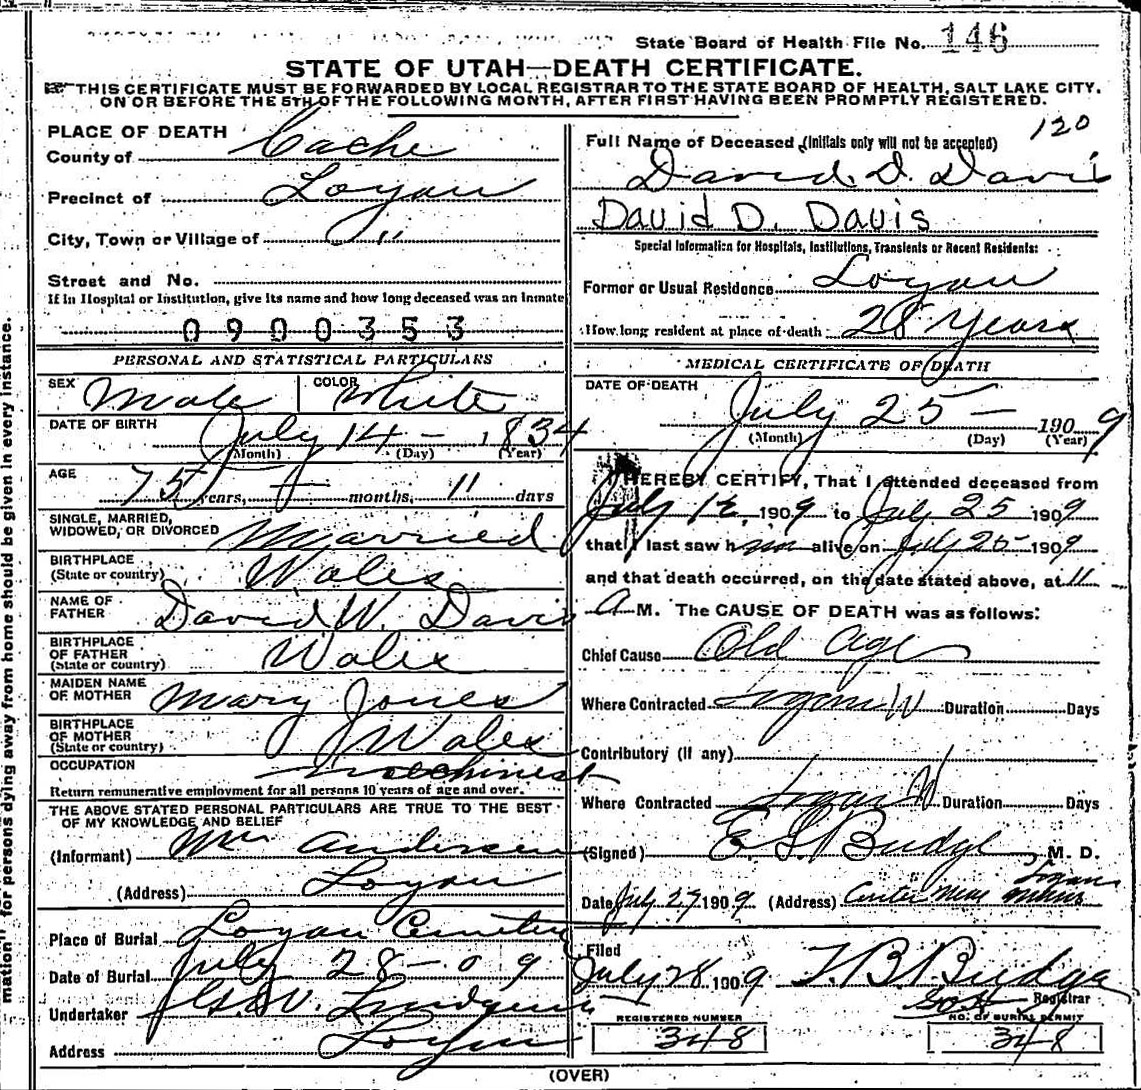 State Board of Health File No. 146
STATE OF UTAH—DEATH CERTIFICATE.
THIS CERTIFICATE MUST BE FORWARDED BY LOCAL REGISTRAR TO THE STATE BOARD OF HEALTH, SALT LAKE CITY,
ON OR BEFORE THE 5TH OF THE FOLLOWING MONTH, AFTER FIRST HAVING BEEN PROMPTLY REGISTERED.
PLACE OF DEATH
County of Cache
Precinct of Logan
City, Town or Village of "
Street and No.
If in Hospital or Institution, give its name and how long deceased was an inmate
0900353
PERSONAL AND STATISTICAL PARTICULARS
SEX Male COLOR White
DATE OF BIRTH July 14 - 1834
(Month) (Day) (Year)
AGE 75 years, months, 11 days
SINGLE, MARRIED,
WIDOWED, OR DIVORCED Married
BIRTHPLACE
(State or country) Wales
NAME OF
FATHER David W. Davis
BIRTHPLACE
OF FATHER
(State or country) Wales
MAIDEN NAME
OF MOTHER Mary Jones
BIRTHPLACE
OF MOTHER
(State or country) Wales
OCCUPATION Machinest
Return remunerative employment for all persons 10 years of age and over.
THE ABOVE STATED PERSONAL PARTICULARS ARE TRUE TO THE BEST
OF MY KNOWLEDGE AND BELIEF
(Informant) Andersen
(Address) Logan
Place of Burial Logan Cemetery
Date of Burial July 28-09
Undertaker Lindquist
Address Logan
120
Full Name of Deceased (Initials only will not be accepted)
David D. Davis
David D. Davis
Special Information for Hospitals, Institutions, Transients or Recent Residents:
Former or Usual Residence Logan
How long resident at place of death 28 Years
MEDICAL CERTIFICATE OF DEATH
DATE OF DEATH
July 25 - 1909
(Month) (Day) (Year)
I HEREBY CERTIFY, That I attended deceased from
July 1909 to July 25 1909
that I last saw him alive on July 25 1909
and that death occurred, on the date stated above, at 11
A M. The CAUSE OF DEATH was as follows:
Chief Cause Old Age
Where Contracted Logan U Duration Days
Contributory (if any)
Where Contracted Logan U Duration Days
(Signed) E. S. Budge, M. D.
Date July 27 1909 (Address) Center Logan
Filed
July 28 1909 T. B. Budge
Registrar
REGISTERED NUMBER
348
NO. OF BURIAL PERMIT
348
(OVER)
mation" for persons dying away from home should be given in every instance.